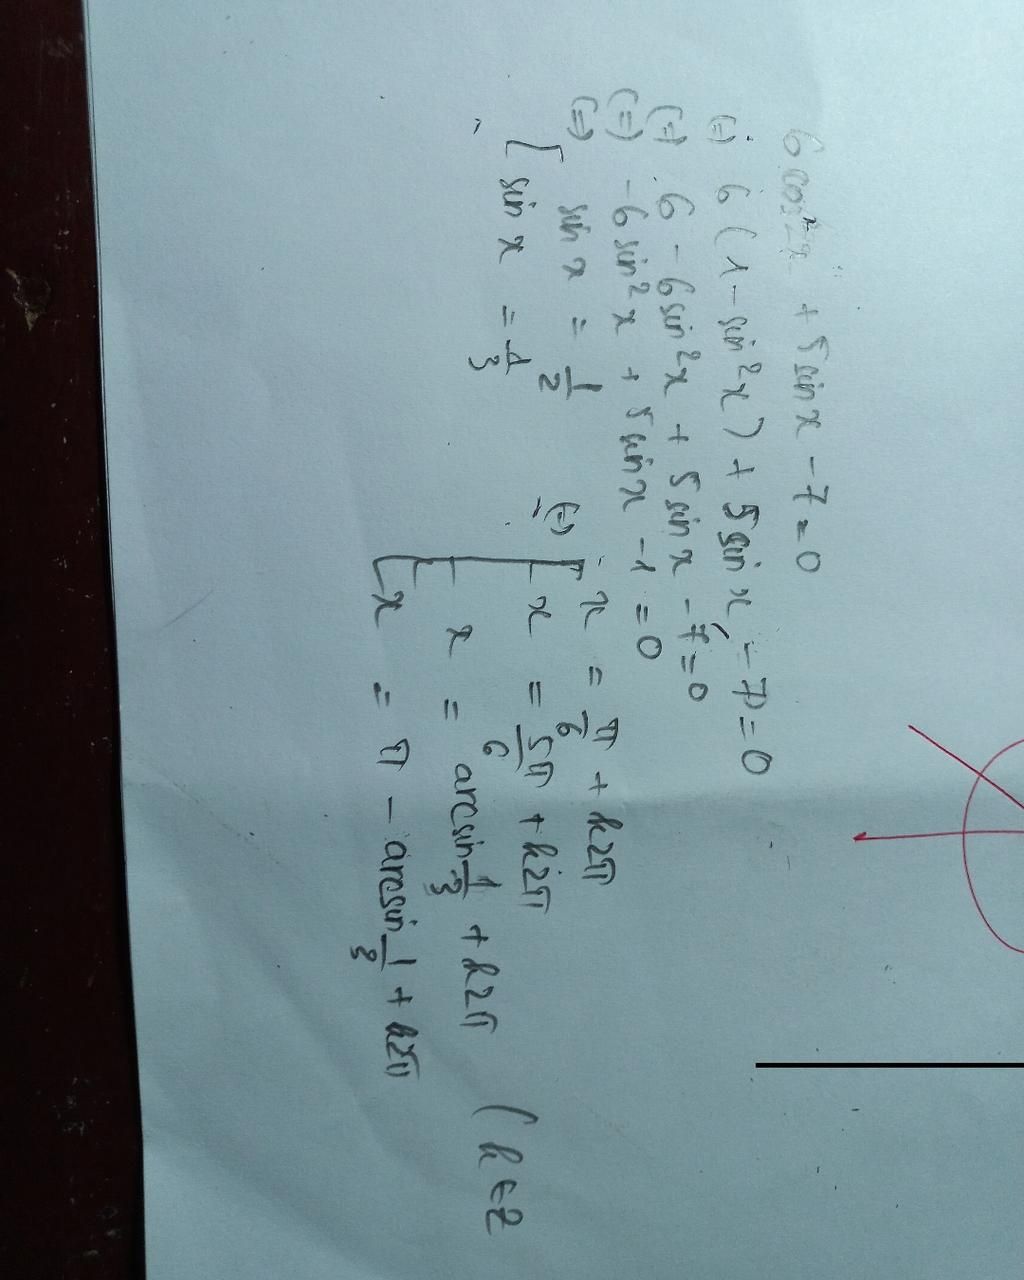 6 cos²x + 5 sin x - 7 = 0
(=) 6 (1 - sin²x) + 5 sin x - 7 = 0
(=) 6 - 6 sin²x + 5 sin x - 7 = 0
(=) -6 sin²x + 5 sin x - 1 = 0
(=) [ sin x = 1/2
sin x = 1/3
(=) [ x = π/6 + k2π
x = 5π/6 + k2π
x = arcsin 1/3 + k2π
x = π - arcsin 1/3 + k2π
(k ∈ Z